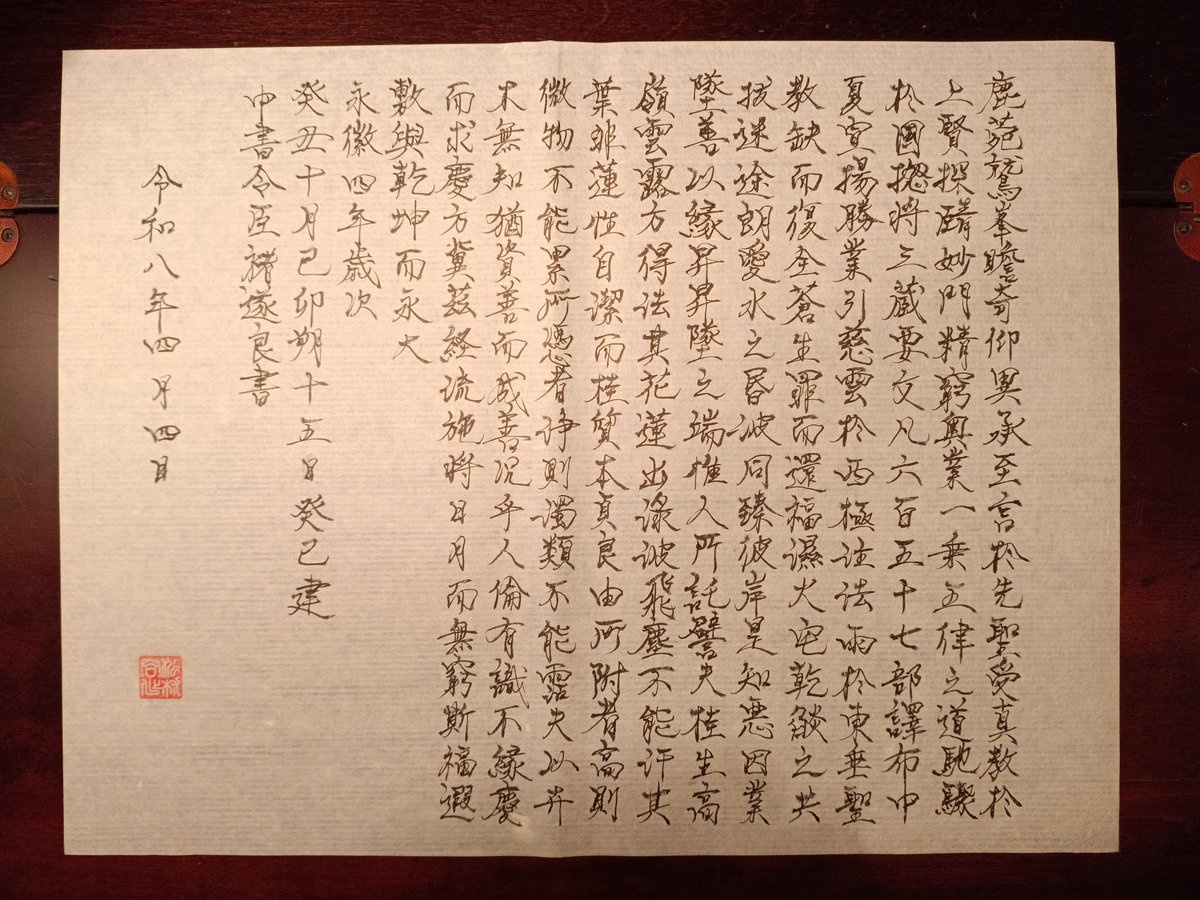 鹿苑鷲峯瞻奇仰異承至言於先聖受真教於
上賢探賾妙門精窮奥業一乗五律之道馳驟
於國揔将三蔵要文凡六百五十七部譯布中
夏宣揚勝業引慈雲於西極注法雨於東垂聖
教缺而復全蒼生罪而還福濕火宅乾燄之共
拔迷途朗愛水之昬波同臻彼岸是知悪因業
墜善以縁昇昇墜之端惟人所託譬夫桂生高
嶺雲露方得泫其花蓮出淥波飛塵不能汙其
葉非蓮性自潔而桂質本貞良由所附者高則
微物不能累所憑者浄則濁類不能霑夫以卉
木無知猶資善而成善况乎人倫有識不縁慶
而求慶方冀茲経流施将日月而無窮斯福遐
敷與乾坤而永大
永徽四年歳次
癸丑十月己卯朔十五日癸巳建
中書令臣褚遂良書
令和八年四月四日